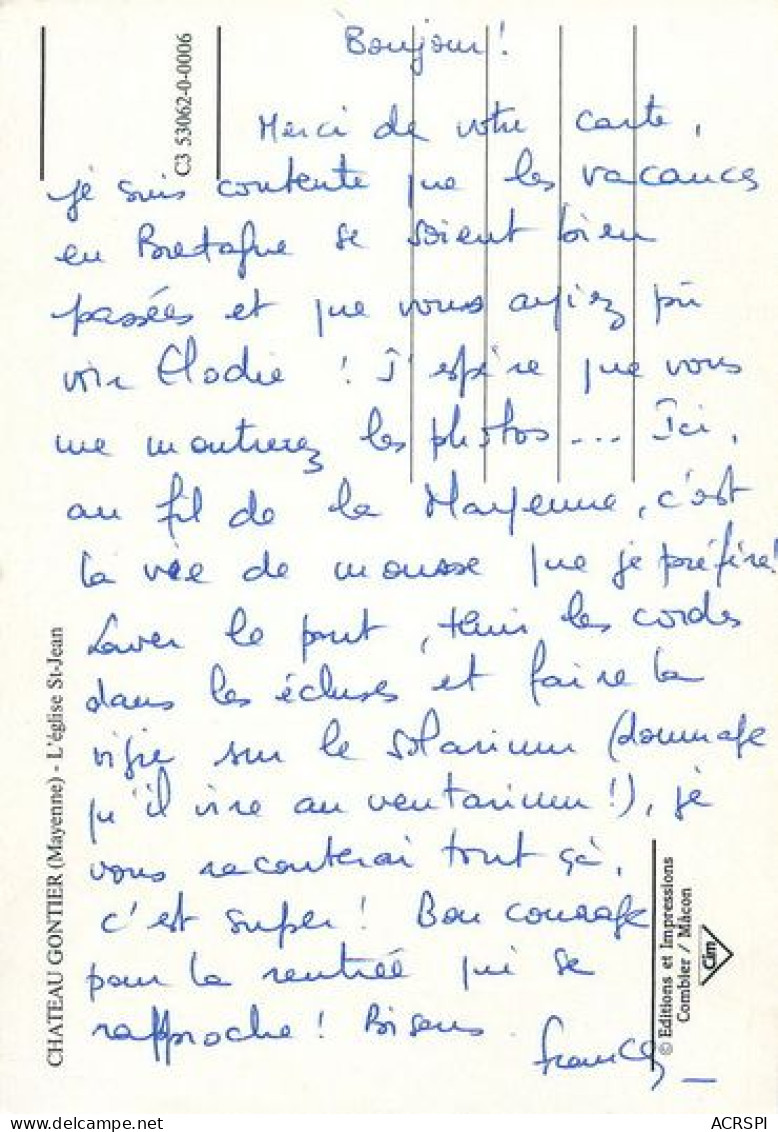 Bonjour !
Merci de votre carte,
je suis contente que les vacances
en Bretagne se soient bien
passées et que vous ayiez pû
voir Elodie ! J'espère que vous
me montrerez les photos ... Ici,
au fil de la Mayenne, c'est
la vie de mousse que je préfère !
Laver le pont, tenir les cordes
dans les écluses et faire la
vigie sur le solarium (dommage
qu'il vire au ventarium !), je
vous raconterai tout çà,
c'est super ! Bon courage
pour la rentrée qui se
rapproche ! Bisous.
C3 53062-0-0006
CHATEAU GONTIER (Mayenne) - L'église St-Jean
© Editions et Impressions
Combier / Mâcon
Cim
ACRSPI